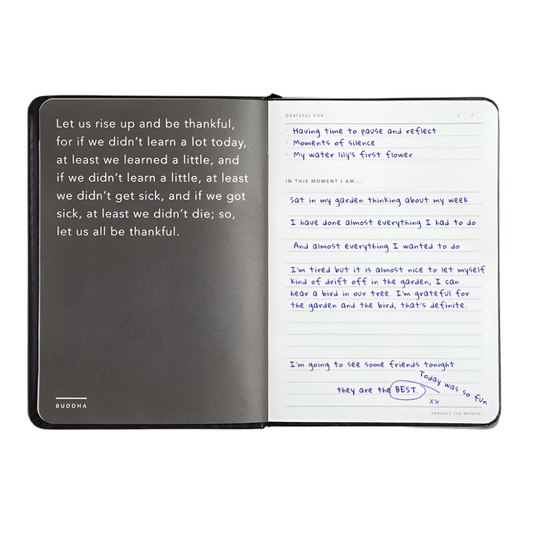 Let us rise up and be thankful,
for if we didn't learn a lot today,
at least we learned a little, and
if we didn't learn a little, at least
we didn't get sick, and if we got
sick, at least we didn't die; so,
let us all be thankful.
BUDDHA
GRATEFUL FOR / /
Having time to pause and reflect
Moments of silence
My water lily's first flower
IN THIS MOMENT I AM...
Sat in my garden thinking about my week
I have done almost everything I had to do
And almost everything I wanted to do
I'm tired but it is almost nice to let myself
kind of drift off in the garden, I can
hear a bird in our tree. I'm grateful for
the garden and the bird, that's definite.
I'm going to see some friends tonight
they are the BEST.
Today was so fun
xx
EMBRACE THE MOMENT